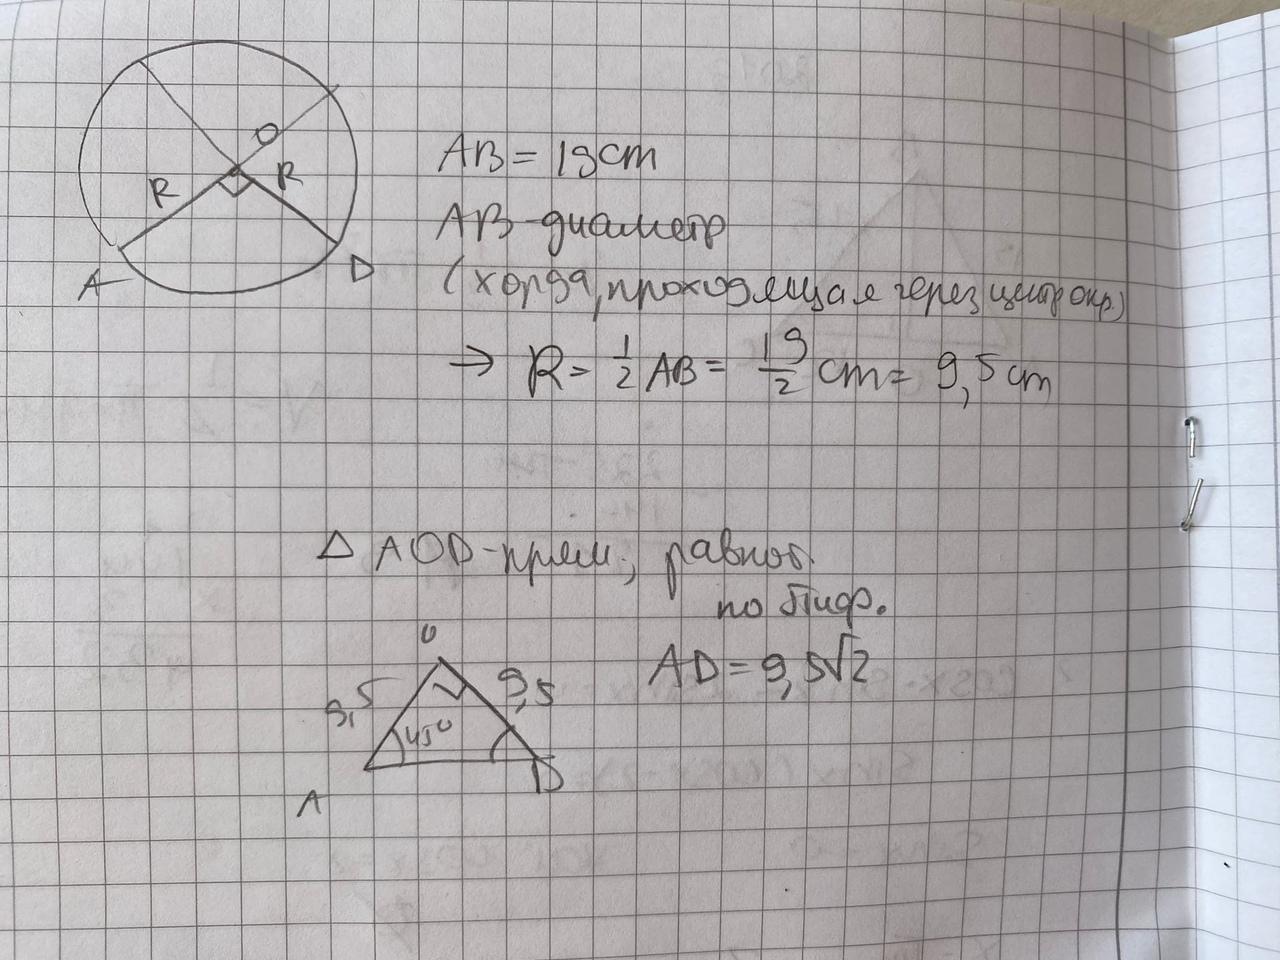 O
R
R
A
D
AB = 19cm
AB - диаметр
(хорда, проходящая через центр окр.)
→ R = 1/2 AB = 19/2 cm = 9,5 cm
△ AOD - прям., равноб.
по Пиф.
O
AD = 9,5√2
9,5
9,5
45°
A
D